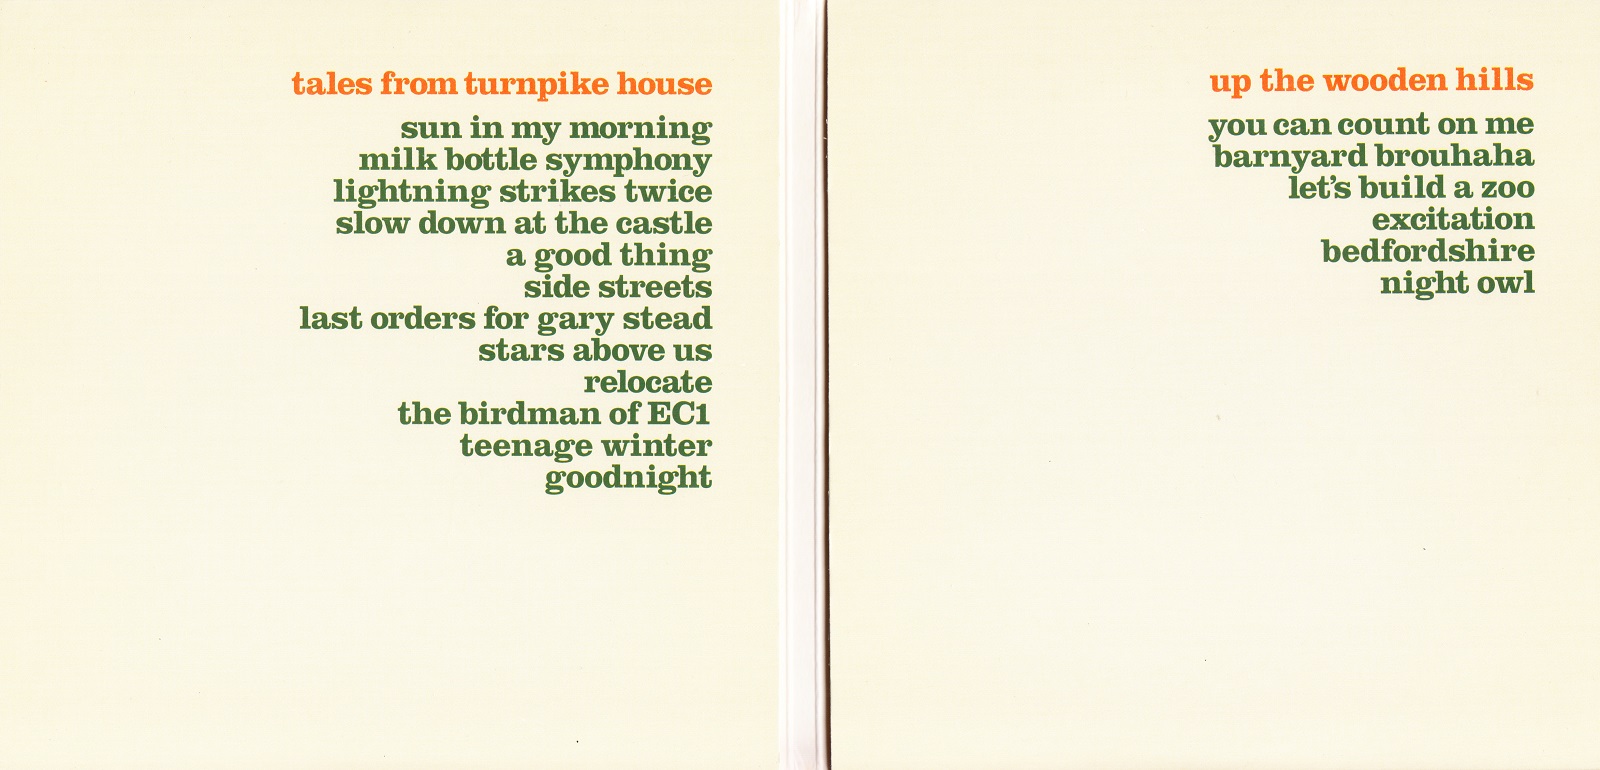 tales from turnpike house
sun in my morning
milk bottle symphony
lightning strikes twice
slow down at the castle
a good thing
side streets
last orders for gary stead
stars above us
relocate
the birdman of EC1
teenage winter
goodnight
up the wooden hills
you can count on me
barnyard brouhaha
let's build a zoo
excitation
bedfordshire
night owl